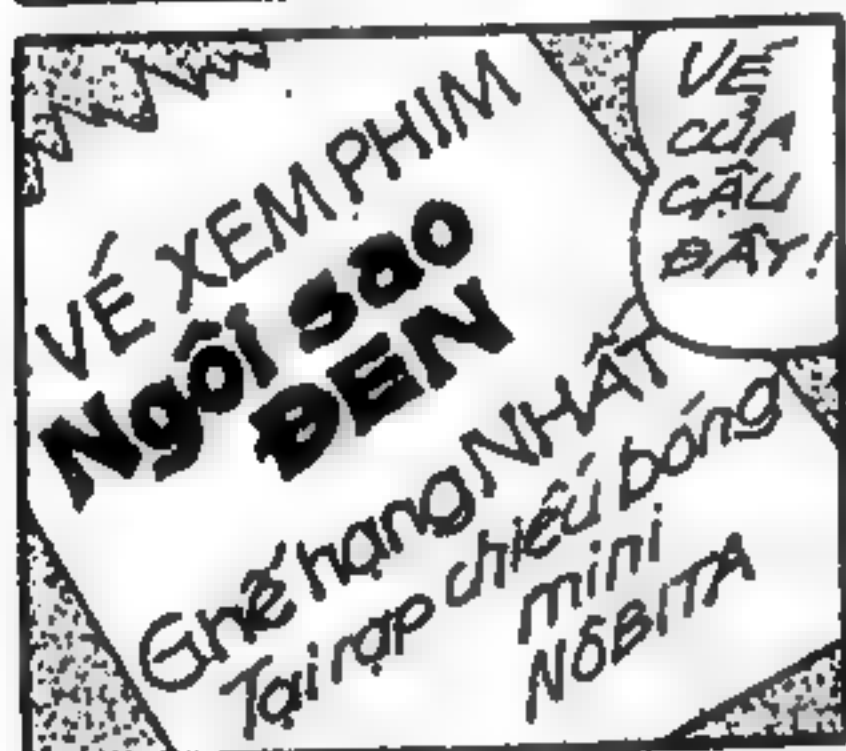 VÉ XEM PHIM
Ngôi sao
ĐEN
Ghế hạng NHẤT
Tại rạp chiếu bóng
mini
NÔBITA
VÉ
CỦA
CẬU
ĐÂY!